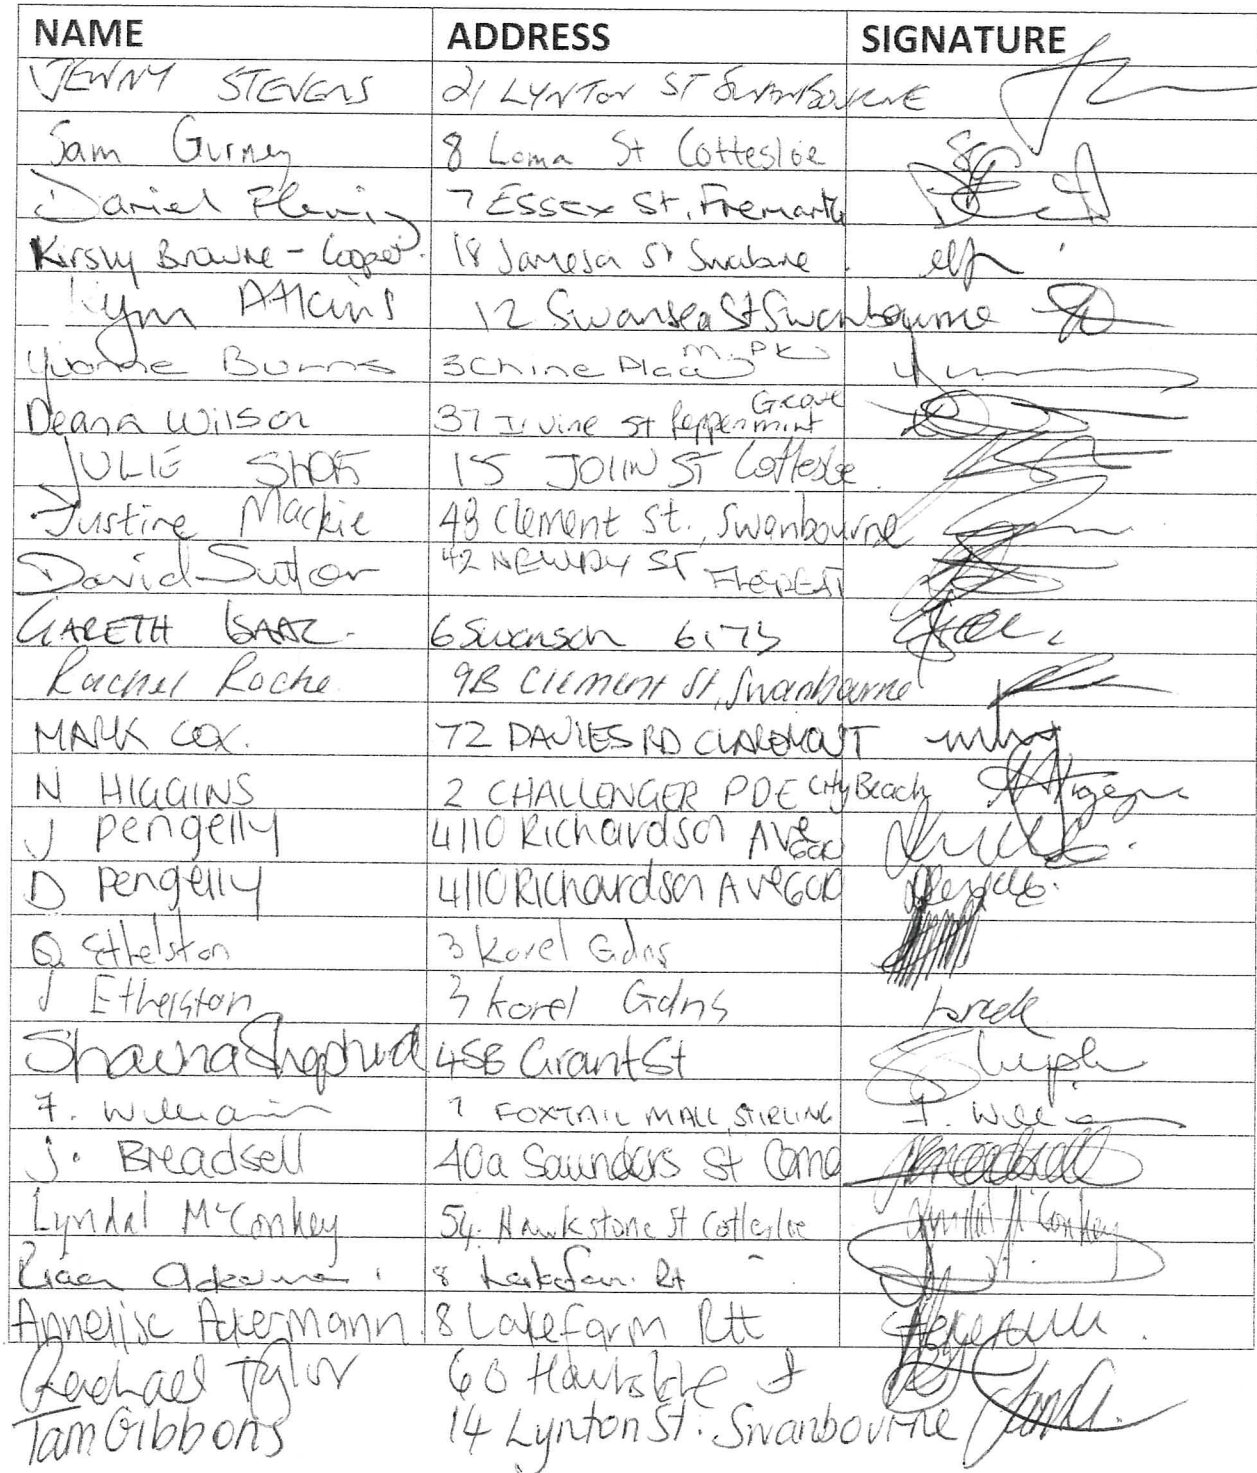 NAME ADDRESS SIGNATURE
JENNY STEVENS 21 LYNTON ST SWANBOURNE
Sam Gurney 8 Loma St Cottesloe
Daniel Fleming 7 Essex St, Fremantle
Kirsty Browne-Cooper 18 Jameson St Swanbourne
Kym Atkins 12 Swansea St Swanbourne
Yvonne Burns 3 Chine Place M. PK
Deana Wilson 37 Irvine St Peppermint Grove
JULIE 15 JOHN ST Cottesloe
Justine Mackie 48 Clement St., Swanbourne
David Sutton 42 ST
GARETH ISAAC. 6
Rachel Roche 9B Clement St, Swanbourne
MARK COX. 72 DAVIES RD CLAREMONT
N HIGGINS 2 CHALLENGER PDE City Beach
J Pengelly 4/10 Richardson Ave
D Pengelly 4/10 Richardson Ave
Q Ethelston 3 Korel Gdns
J Ethelston 3 Korel Gdns
Shauna Shepherd 45B Grant St
F. William 7 FOXTAIL MALL, STIRLING F. William
J. Breadsell 40a Saunders St Como Jbreadsell
Lyndal McConkey 54 Hawkstone St Cottesloe Lyndal McConkey
8
Annelise Akermann 8 Lakefarm Rtt
Rachael Taylor 60 St
Tam Gibbons 14 Lynton St. Swanbourne